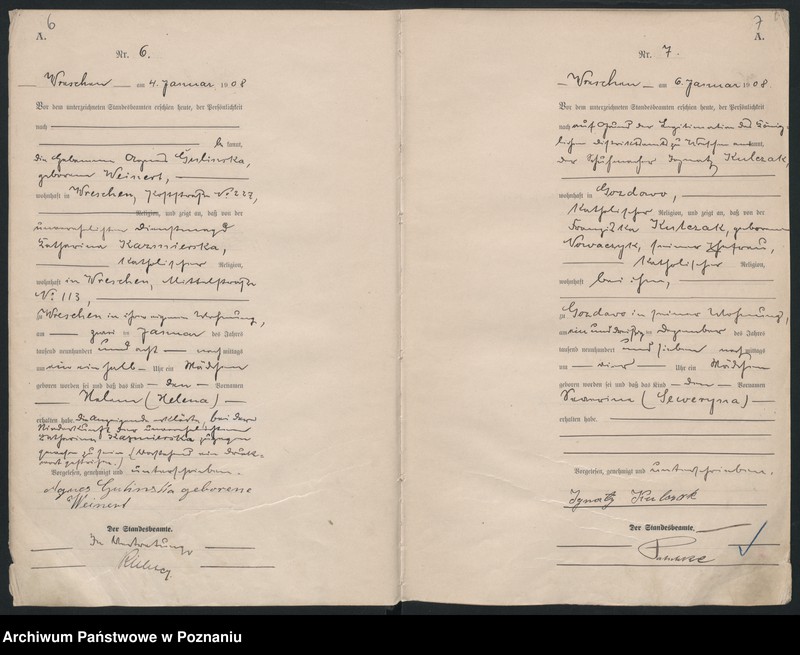 6
A.
Nr. 6.
Wreschen am 4. Januar 1908
Vor dem unterzeichneten Standesbeamten erschien heute, der Persönlichkeit
nach
kannt,
die Hebamme Agnes Gulinska,
geborene Weinert,
wohnhaft in Wreschen, № 227,
Religion, und zeigt an, daß von der
unverehelichten Dienstmagd
Katharina Kazmierska,
katholischer Religion,
wohnhaft in Wreschen,
№ 113,
zu Wreschen in ihrer eigenen Wohnung,
am zwei ten Januar des Jahres
tausend neunhundert und acht nachmittags
um ein halb Uhr ein Mädchen
geboren worden sei und daß das Kind den Vornamen
Helene (Helena)
erhalten habe. Die Anzeigende erklärte, bei der
Niederkunft der unverehelichten
Katharina Kazmierska zugegen
gewesen zu sein. (Vorstehend ein Druck-
wort gestrichen.)
Vorgelesen, genehmigt und unterschrieben.
Agnes Gulinska geborene
Weinert
Der Standesbeamte.
In Vertretung
7
A.
Nr. 7.
Wreschen am 6. Januar 1908
Vor dem unterzeichneten Standesbeamten erschien heute, der Persönlichkeit
nach auf Grund der Legitimation des König-
lichen Distriktsamts zu Wreschen kannt,
der Schuhmacher Ignatz Kulczak,
wohnhaft in Gozdowo,
katholischer Religion, und zeigt an, daß von der
Franziska Kulczak, geborenen
Nowaczyk, seiner Ehefrau,
katholischer Religion,
wohnhaft bei ihm,
zu Gozdowo in seiner Wohnung,
am ein und dreißig ten Dezember des Jahres
tausend neunhundert und sieben nachmittags
um vier Uhr ein Mädchen
geboren worden sei und daß das Kind den Vornamen
Severine (Seweryna)
erhalten habe.
Vorgelesen, genehmigt und unterschrieben.
Ignatz
Der Standesbeamte.
Archiwum Państwowe w Poznaniu